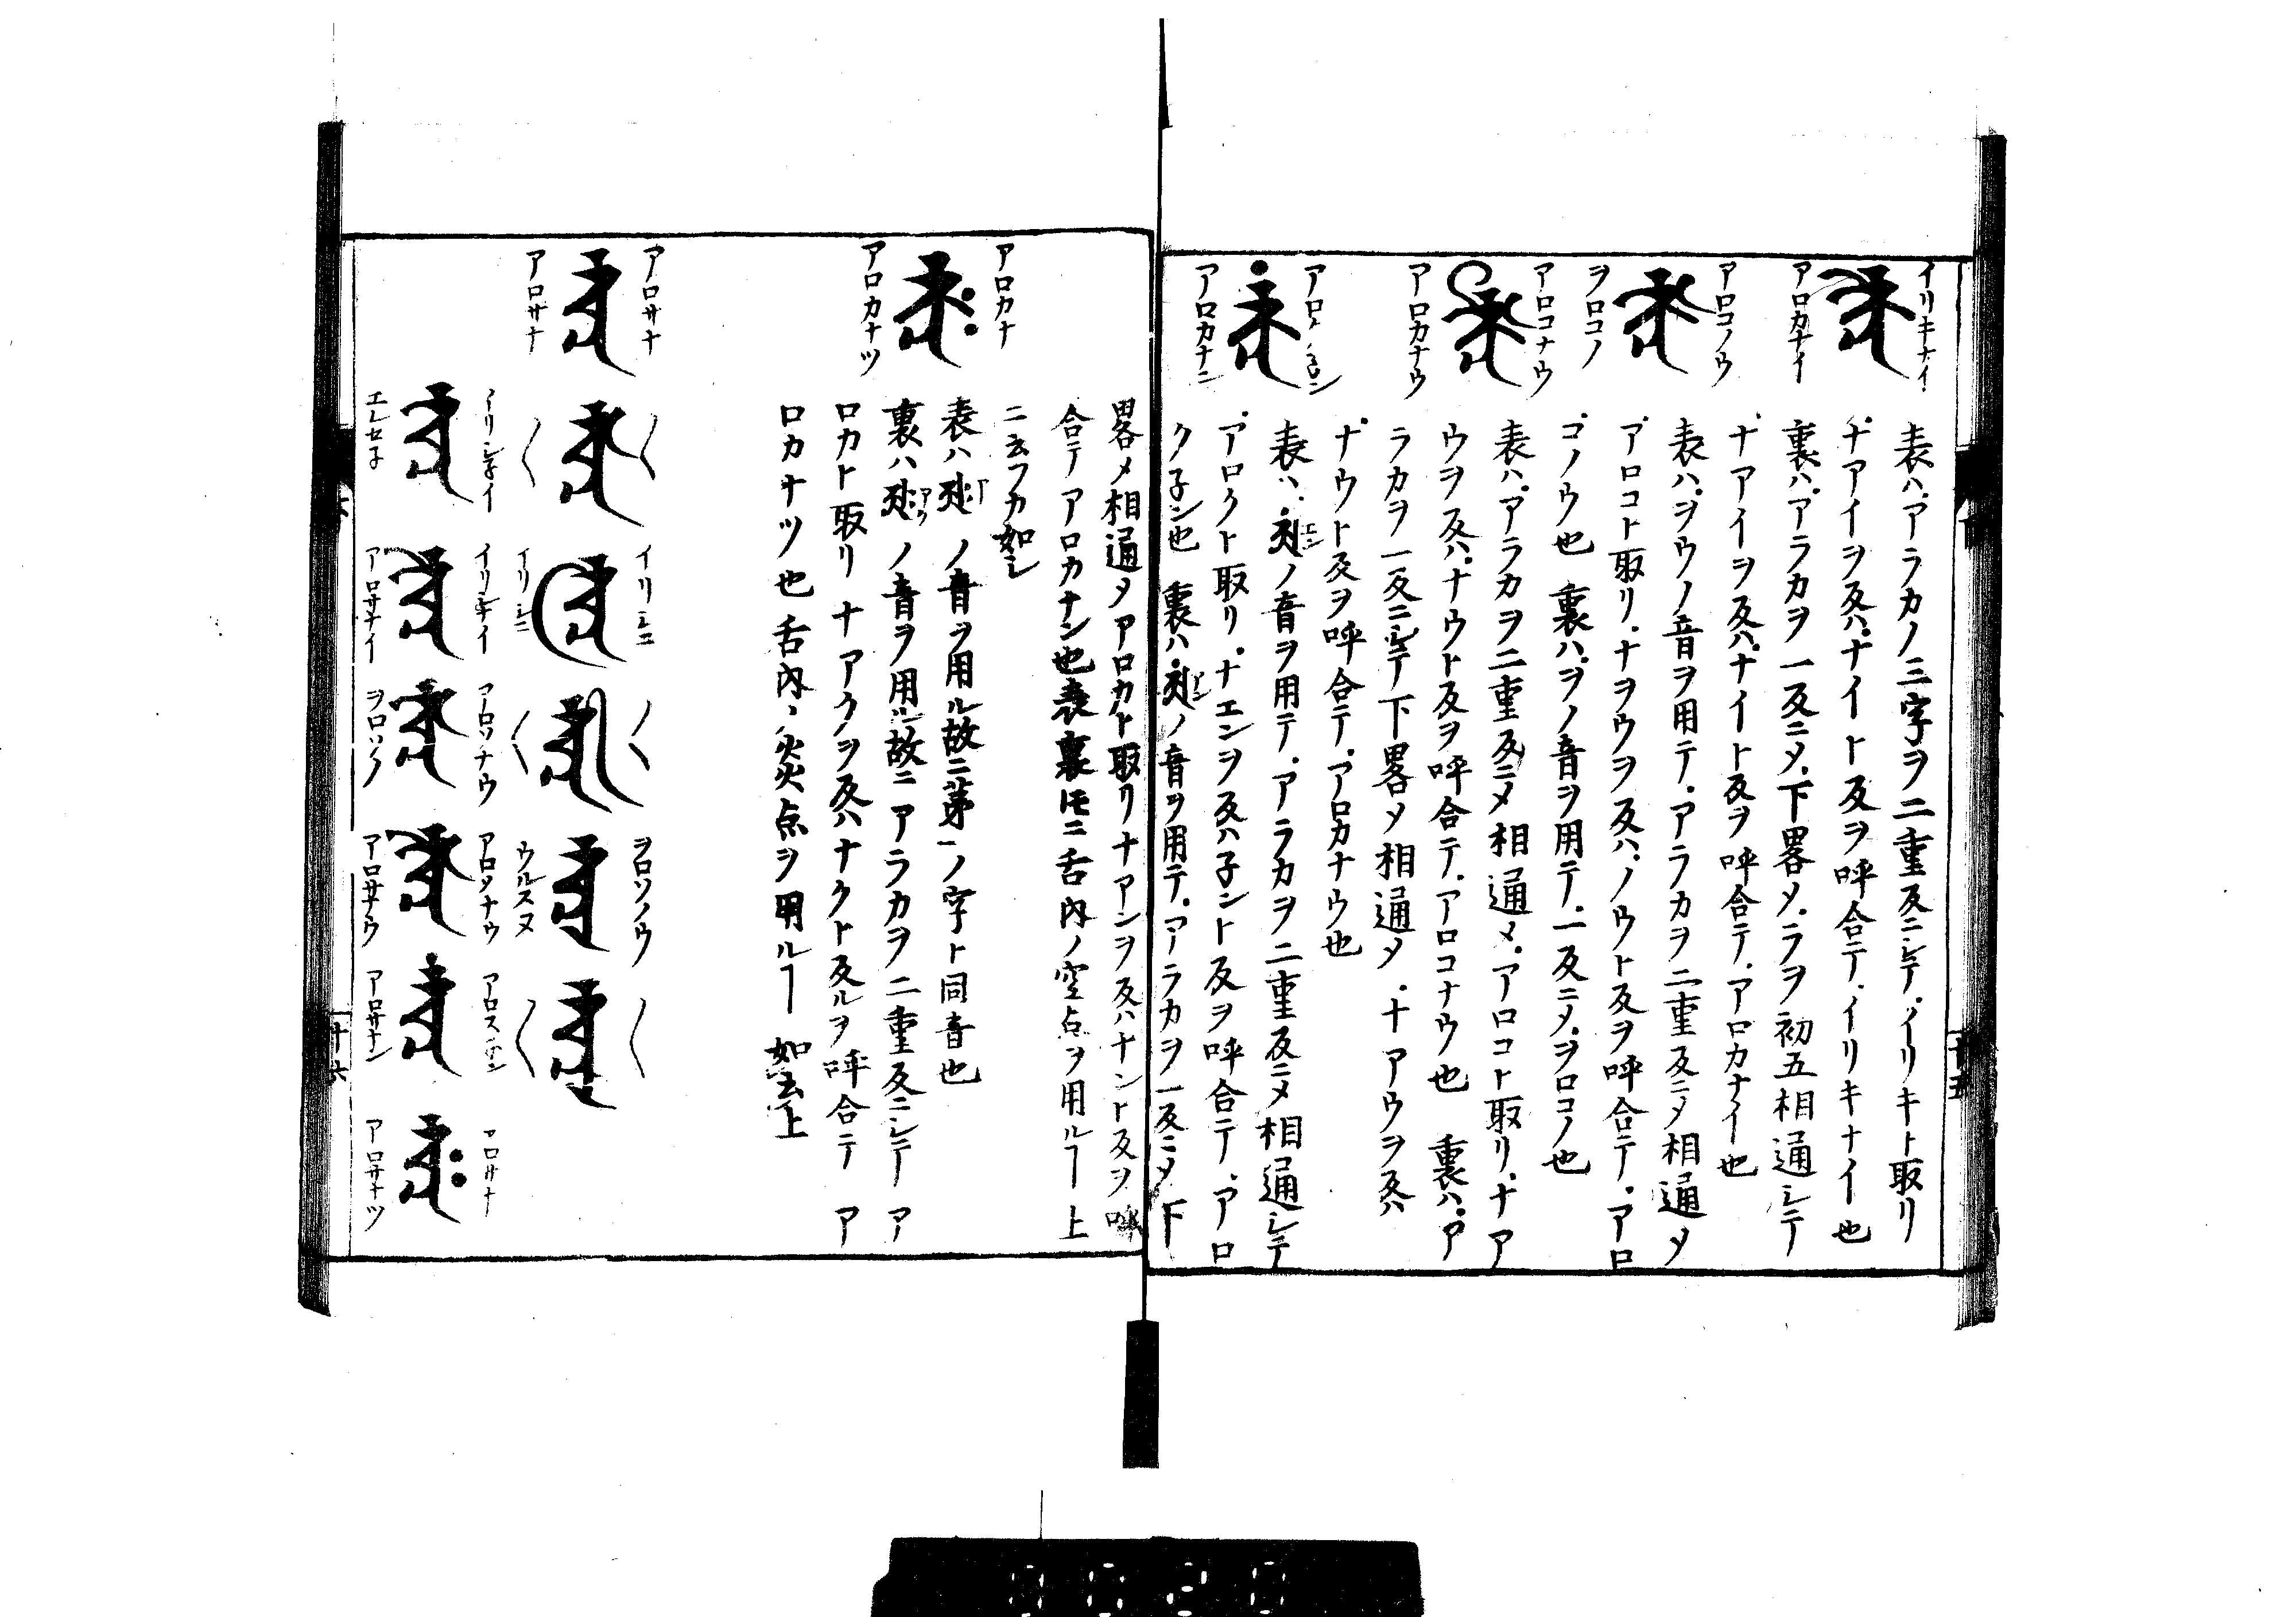 イリキナイ
アロカナイ
表ハアラカノ三字ヲ二重反ニシテイリキト取リ
ナアイヲ反ハナイト反ヲ呼合テイリキナイ也
裏ハアラカヲ一反ニメ下畧メラヲ初五相通シテ
ナアイヲ反ハナイト反ヲ呼合テアロカナイ也
アロコノウ
ヲロコノ
表ハヲウノ音ヲ用テアラカヲ二重反ニメ相通メ
アロコト取リナヲウヲ反ハノウト反ヲ呼合テアロ
コノウ也 裏ハヲノ音ヲ用テ一反ニメヲロコノ也
アロコナウ
アロカナウ
表ハアラカヲ二重反ニメ相通メアロコト取リナア
ウヲ反ハナウト反ヲ呼合テアロコナウ也 裏ハア
ラカヲ一反ニシテ下畧メ相通メナアウヲ反ハ
ナウト反ヲ呼合テアロカナウ也
アロカナン
表ハ ノ音ヲ用テアラカヲ二重反ニメ相通シテ
アロクト取リナエンヲ反ハ子ント反ヲ呼合テアロ
ク子ン也 裏ハ ノ音ヲ用テアラカヲ一反ニメ下
畧メ相通メアロカト取リナアンヲ反ハナント反ヲ呼
合テアロカナン也表裏ニ舌内ノ空点ヲ用ルヿ上
ニ云フカ如シ
アロカナ
アロカナツ
表ハ ノ音ヲ用ル故ニ第一ノ字ト同音也
裏ハ ノ音ヲ用ル故ニアラカヲ二重反ニシテア
ロカト取リナアクヲ反ハナクト反ルヲ呼合テア
ロカナツ也舌内ノ炎点ヲ用ルヿ如云上
アロサナ
アロサナ
イリシニ
イリシニ
ヲロソノウ
ウルスヌ
エレセ子
アロサナイ
アロソナウ
ヲロソノ
アロサナウ
アロサナン
アロサナ
アロサナツ
十五
十六